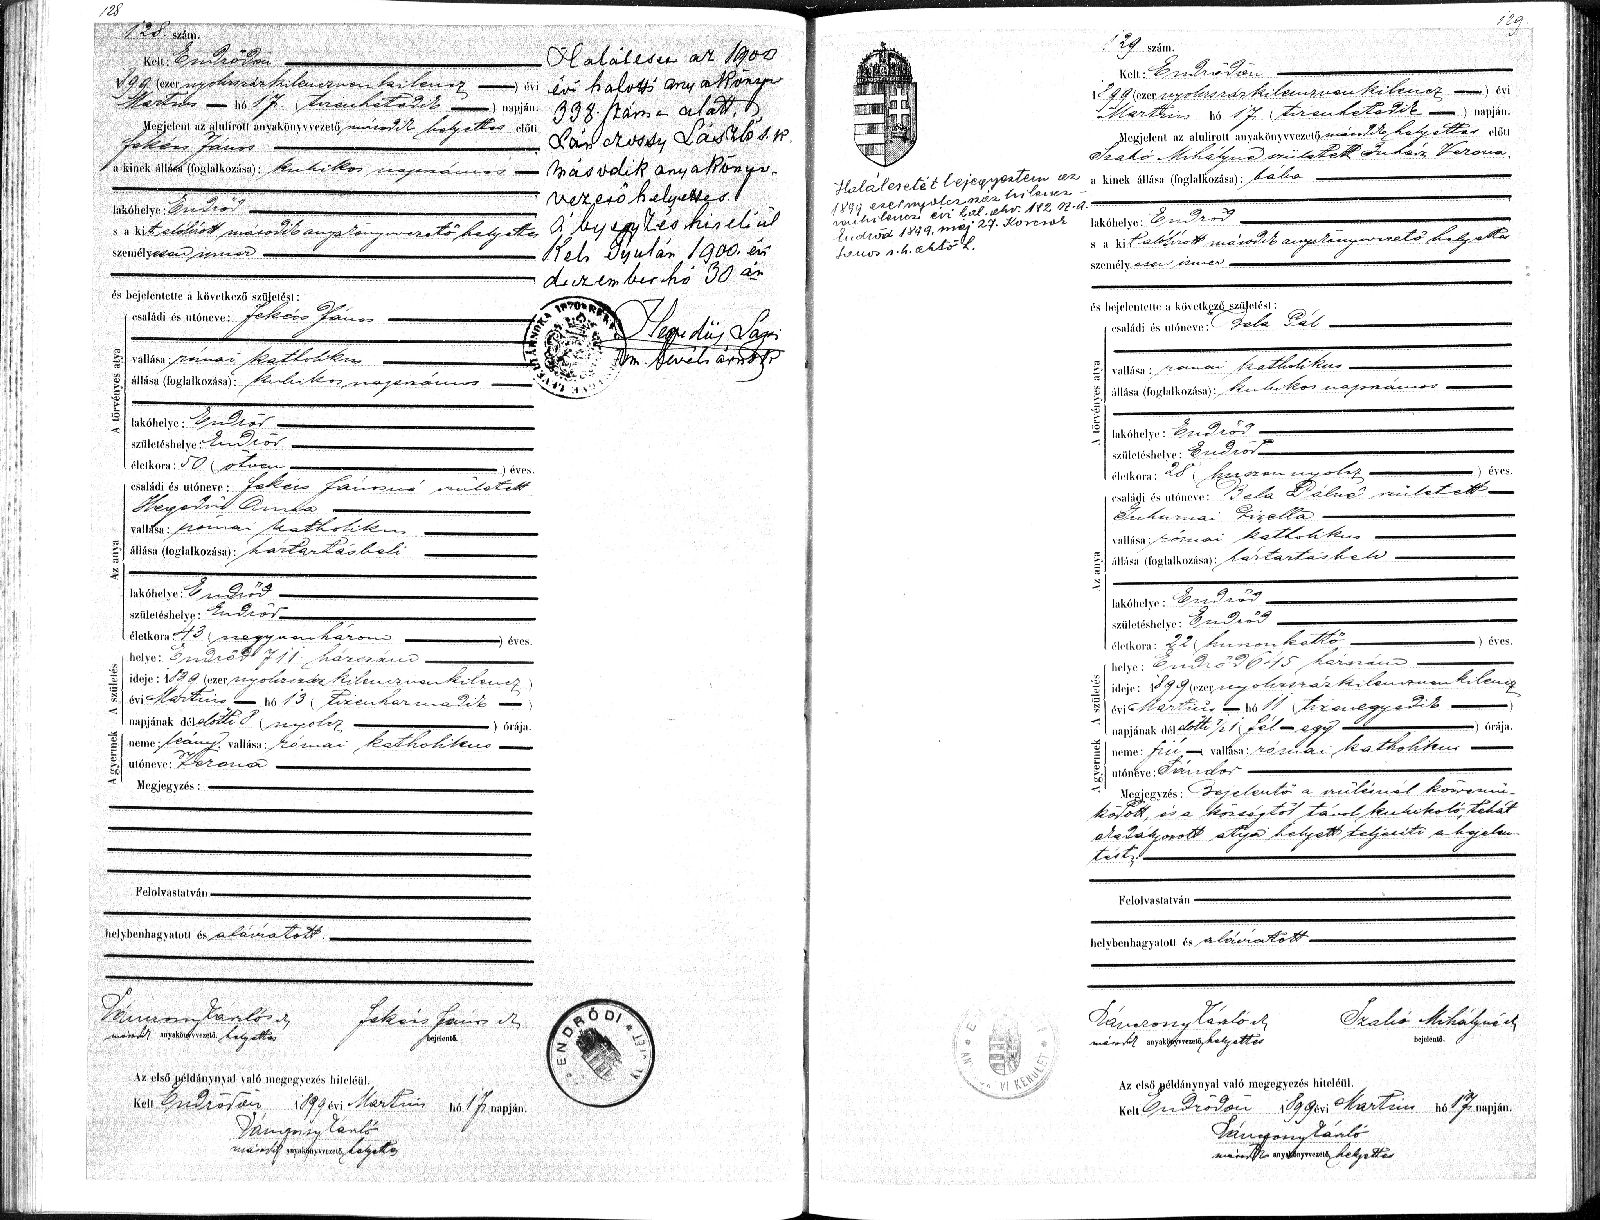 128
128. szám.
Kelt: Endrődön
899 (ezer nyolczszázkilenczvenkilencz ) évi
Martius hó 17. (tizenhetedik ) napján.
Megjelent az alulirott anyakönyvvezető második helyettes előtt
Fekécs János
a kinek állása (foglalkozása): kubikos napszámos
lakóhelye: Endrőd
s a kit alólirott második anyakönyvvezető helyettes
személyesen ismer
és bejelentette a következő születést:
A törvényes atya
családi és utóneve: Fekécs János
vallása: római katholikus
állása (foglalkozása): kubikos napszámos
lakóhelye: Endrőd
születéshelye: Endrőd
életkora: 50 (ötven ) éves.
Az anya
családi és utóneve: Fekécs Jánosné született
Hegedűs Anna
vallása: római katholikus
állása (foglalkozása): háztartásbeli
lakóhelye: Endrőd
születéshelye: Endrőd
életkora: 43 (negyvenhárom ) éves.
A születés
helye: Endrőd 711 házszám
ideje: 1899 (ezer nyolczszázkilenczvenkilencz )
évi Martius hó 13 (tizenharmadik )
napjának délelőtti 8 (nyolcz ) órája.
A gyermek
neme: leány, vallása: római katholikus
utóneve: Verona
Megjegyzés:
Felolvastatván
helybenhagyatott és aláiratott.
második anyakönyvvezető helyettes
Fekécs János sk
bejelentő.
Az első példánynyal való megegyezés hiteléül.
Kelt Endrődön 1899 évi Martius hó 17 napján.
második anyakönyvvezető helyettes
Haláleset az 1900
évi halotti anyakönyv
338. száma alatt,
László s. k.
második anyakönyv-
vezető helyettes.
A bejegyzés hiteléül
Kelt Gyulán 1900. évi
deczember hó 30 án
ENDRŐDI
129
129 szám.
Kelt: Endrődön
899 (ezer nyolczszázkilenczvenkilencz ) évi
Martius hó 17. (tizenhetedik ) napján.
Megjelent az alulirott anyakönyvvezető második helyettes előtt
Szabó Mihályné született Juhász Verona,
a kinek állása (foglalkozása): baba
lakóhelye: Endrőd
s a kit alólirott második anyakönyvvezető helyettes
személyesen ismer
és bejelentette a következő születést:
A törvényes atya
családi és utóneve: Bela Pál
vallása: római katholikus
állása (foglalkozása): kubikos napszámos
lakóhelye: Endrőd
születéshelye: Endrőd
életkora: 28 (huszonnyolcz ) éves.
Az anya
családi és utóneve: Bela Pálné született
Gizella
vallása: római katholikus
állása (foglalkozása): háztartásbeli
lakóhelye: Endrőd
születéshelye: Endrőd
életkora: 22 (huszonkettő ) éves.
A születés
helye: Endrőd 615 házszám
ideje: 1899 (ezer nyolczszázkilenczvenkilencz
évi Martius hó 11 (tizenegyedik )
napjának délelőtti ½1 (fél egy ) órája.
A gyermek
neme: fiú, vallása: római katholikus
utóneve: Sándor
Megjegyzés: Bejelentő a szülésnél közremű-
ködött, és a községtől távol kubikoló, tehát
akadályozott atya helyett teljesíti a bejelen-
tést,
Felolvastatván
helybenhagyatott és aláiratott
második anyakönyvvezető helyettes
Szabó Mihályné sk
bejelentő.
Az első példánynyal való megegyezés hiteléül.
Kelt Endrődön 1899 évi Martius hó 17 napján.
második anyakönyvvezető helyettes
Halálesetét bejegyeztem az
1899 ezernyolczszázkilencz-
venkilencz évi hal. akv. 182 sz. a.
Endrőd 1899. maj 27. Kovács
János s. h.
KERÜLET